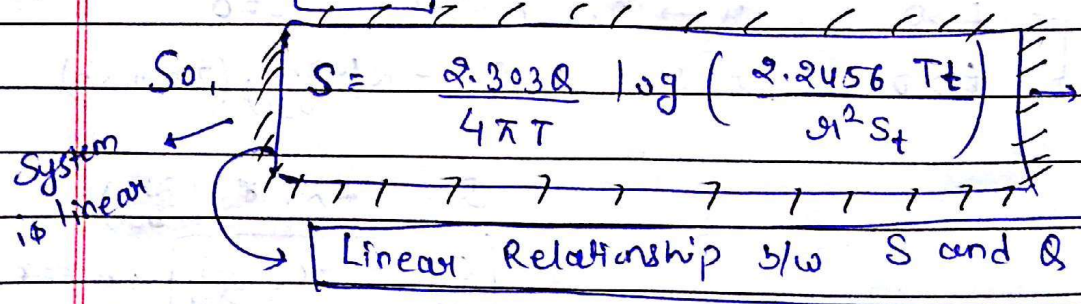 So, S = 2.303Q / 4πT log ( 2.2456 Tt / r² St )
System
is linear
Linear Relationship b/w S and Q